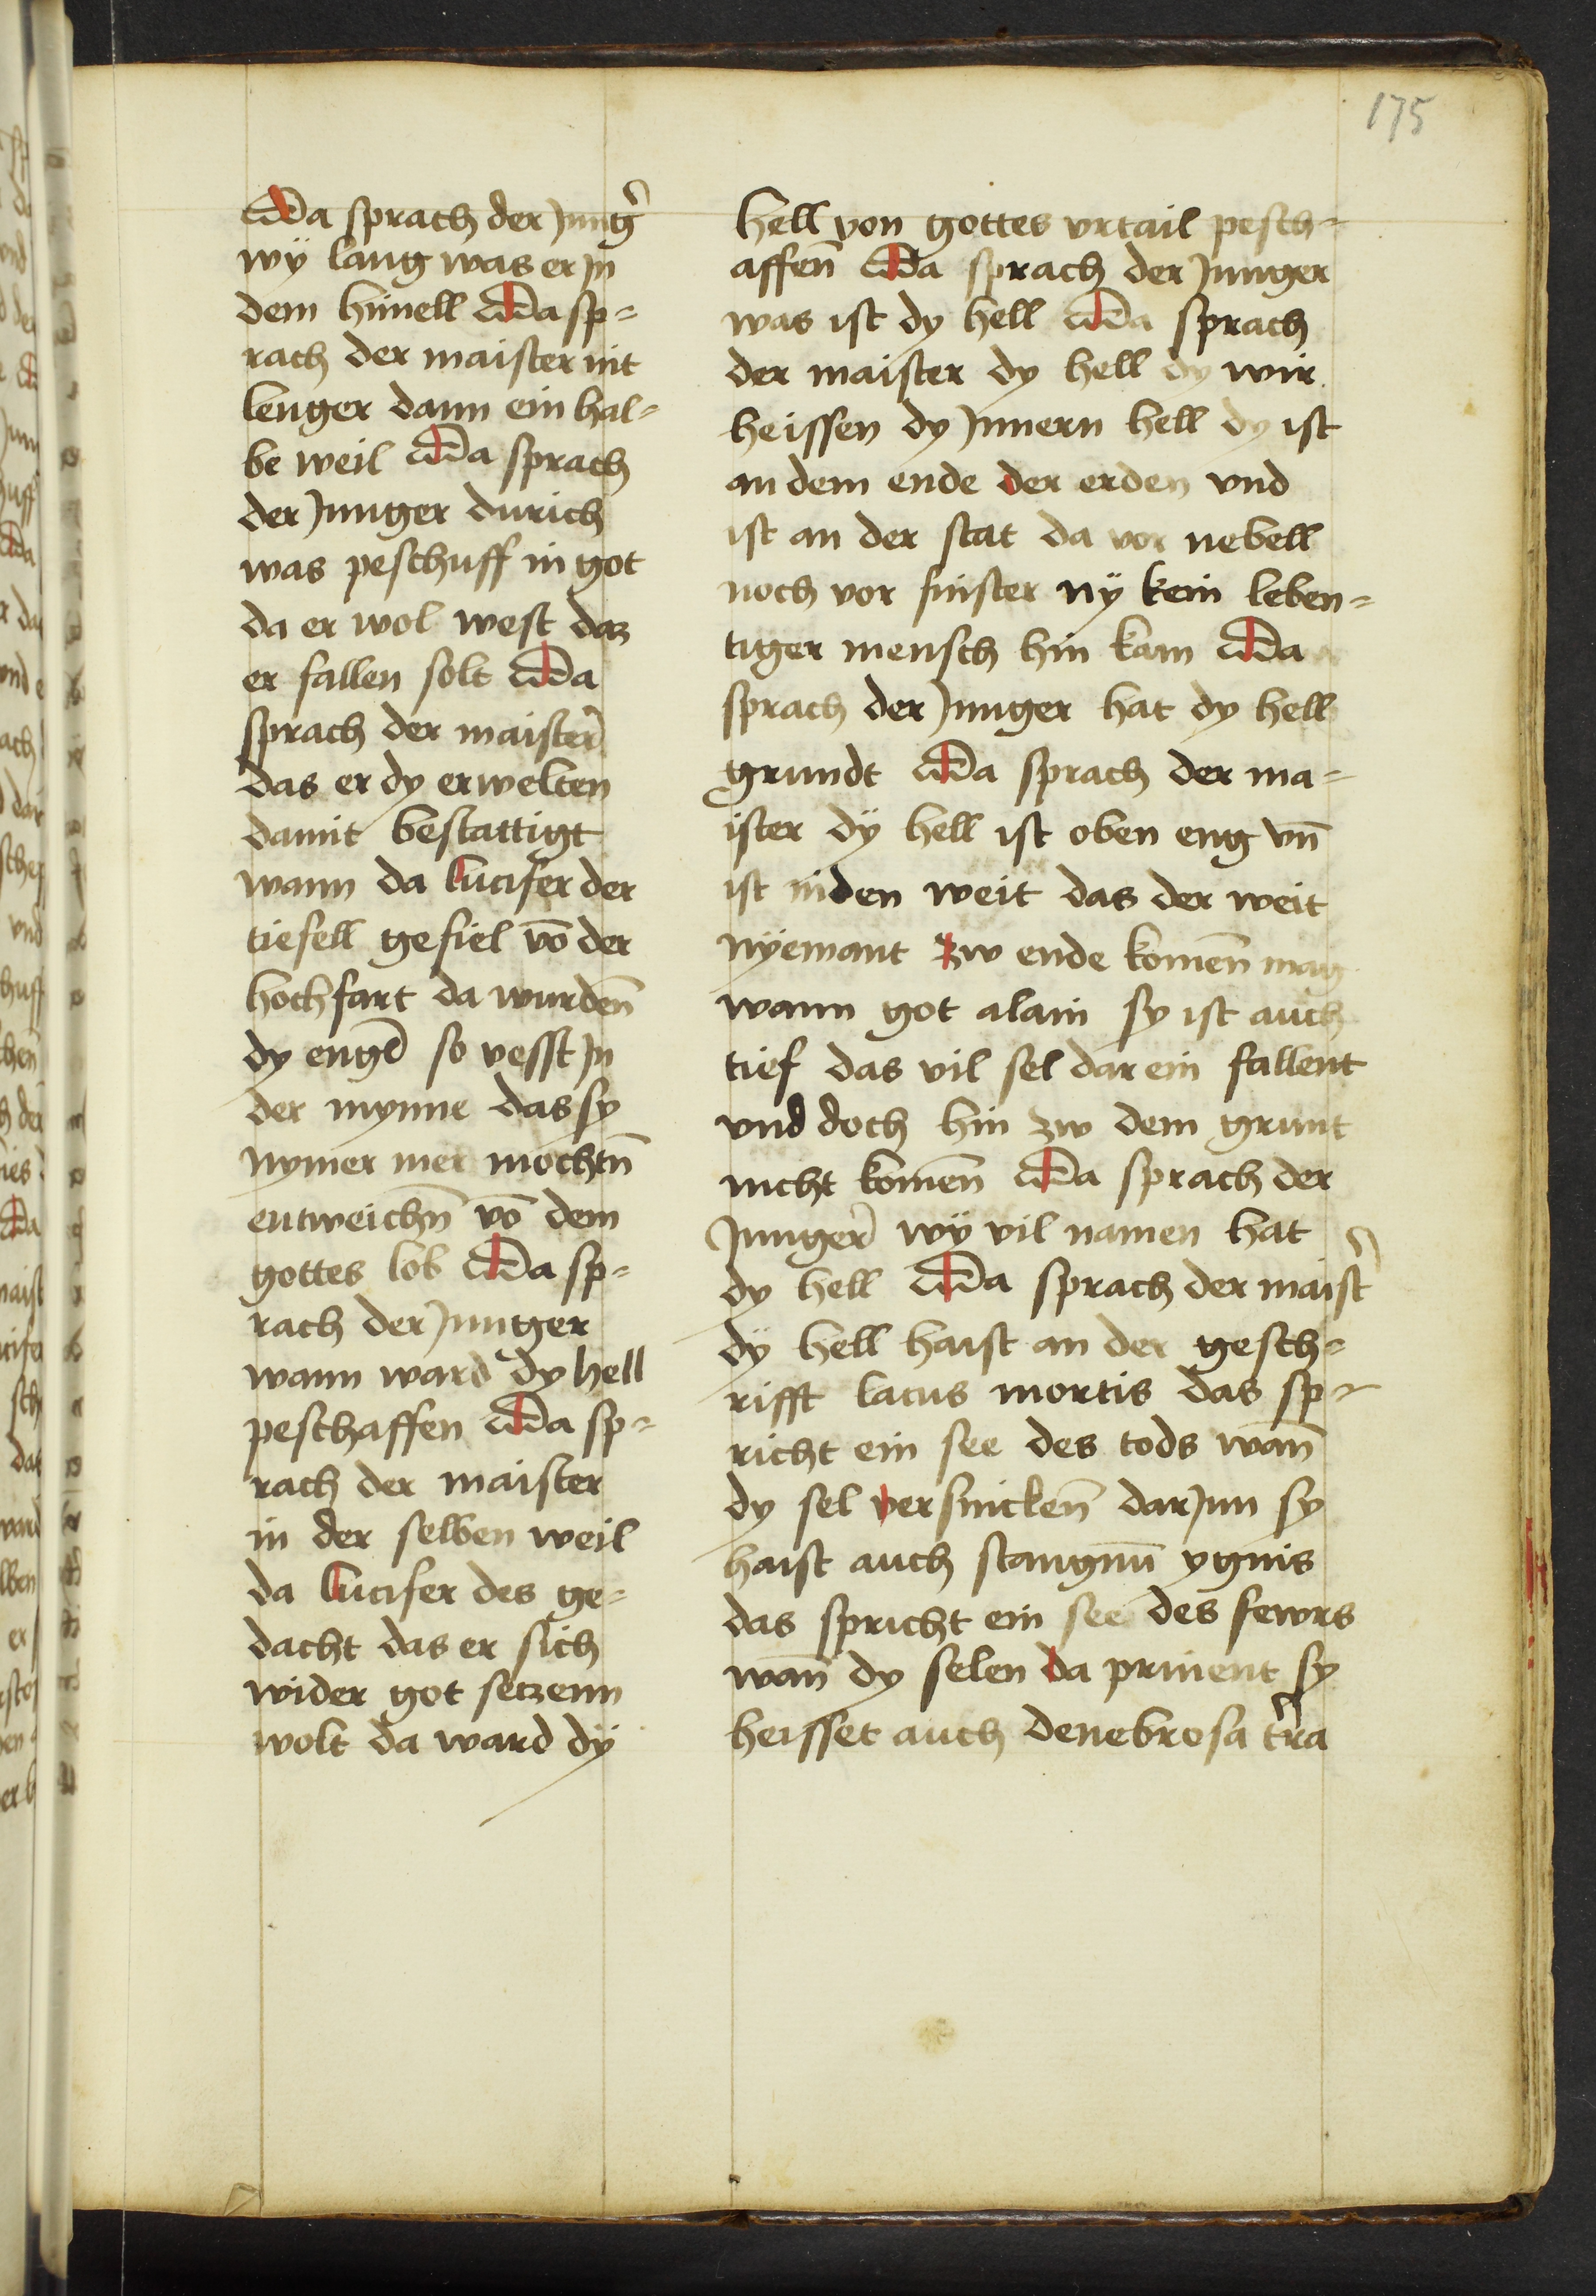 175
Da sprach der Jung̾
wÿ lang was er Jn
dem himell Da sp=
rach der maister nit
lenger dann ein hal=
be weil Da sprach
der Junger durich
was peschuff in got
da er wol west daz
er fallen solt Da
sprach der maister̾
das er dy erwelten
damit bestattigt
wann da lucifer der
tiefell gefiel vō der
hochfart da wurden̄
dy engel so vesst Jn
der mynne das sy
nymer mer mochtn̄
entweichn̄ vō dem
gottes lob Da sp=
rach der Junger
wann ward dy hell
peschaffen Da sp=
rach der maister
in der selben weil
da lucifer des ge=
dacht das er sich
wider got setzenn
wolt da ward dÿ
hell von gottes vrtail pesch=
affen̄ Da sprach der Junger
was ist dy hell Da sprach
der maister dy hell dy wir
heissen dy Jnnern hell dy ist
an dem ende der erden vnd
ist an der stat da vor nebell
noch vor finster nÿ kein leben=
tiger mensch hin kam Da
sprach der Junger hat dy hell
grundt Da sprach der ma=
ister dÿ hell ist oben eng vn̄
ist niden weit das der weit
nÿemant zw ende komen̄ mag
wann got alain sy ist auch
tief das vil sel dar ein fallent
vnd doch hin zw dem grunt
nicht komen̄ Da sprach der
Junger̾ wÿ vil namen hat
dy hell Da sprach der maist̾
dÿ hell haist an der gesch=
rifft lacus mortis das sp=
richt ein see des tods wan̄
dy sel versincken̄ dar Jnn sy
haist auch stangnū ygnis
das spricht ein see des fewrs
wan̄ dy selen da prinent sy
heisset auch denebrosa t̾ra